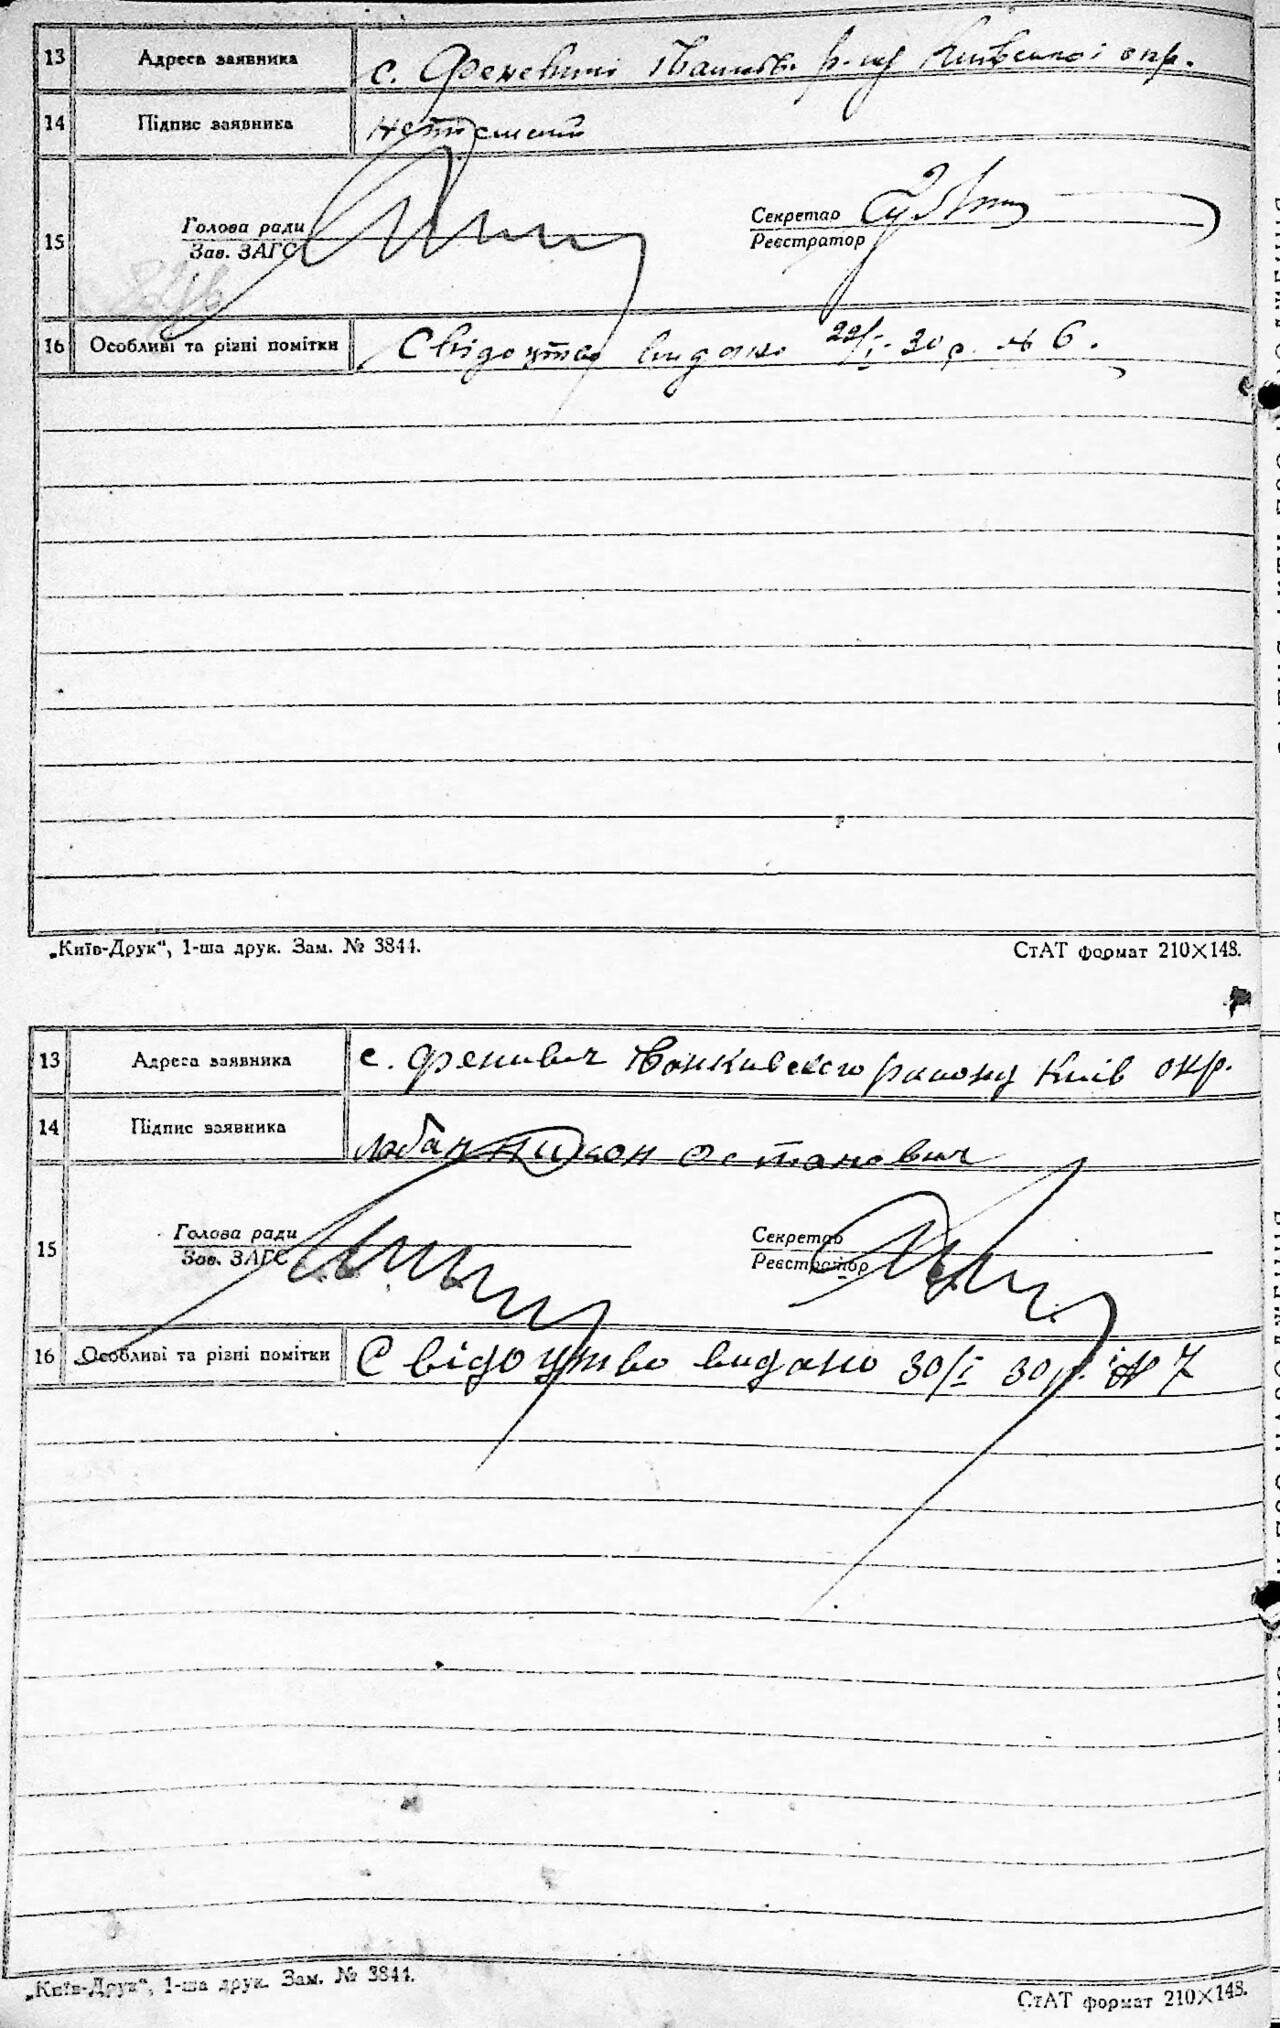 13 Адреса заявника с. Феневичі Іванків. р-ну Київської окр.
14 Підпис заявника неписьмений
15 Голова ради
Зав. ЗАГС
Секретар
Реєстратор
16 Особливі та різні помітки Свідоцтво видано 22/I-30 р. № 6.
„Київ-Друк“, 1-ша друк. Зам. № 3844. СтАТ формат 210×148.
13 Адреса заявника с. Феневич Іванкивсько району Київ окр.
14 Підпис заявника Остапович
15 Голова ради
Зав. ЗАГС
Секретар
Реєстратор
16 Особливі та різні помітки Свідоцтво видано 30/I 30 р. № 7
„Київ-Друк“, 1-ша друк. Зам. № 3844. СтАТ формат 210×148.